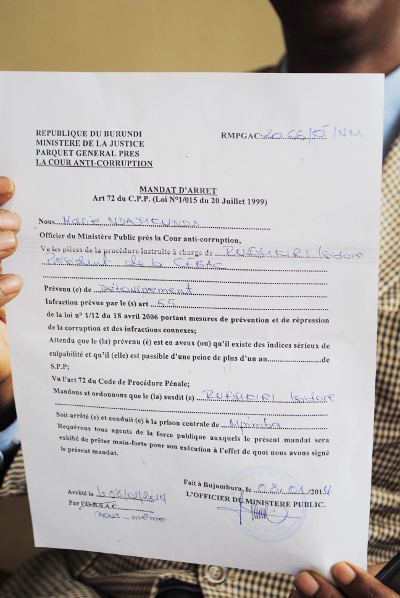 REPUBLIQUE DU BURUNDI
MINISTERE DE LA JUSTICE
PARQUET GENERAL PRES
LA COUR ANTI-CORRUPTION
RMPGAC:
MANDAT D'ARRET
Art 72 du C.P.P. (Loi N°1/015 du 20 Juillet 1999)
Nous
Officier du Ministère Public près la Cour anti-corruption,
Vu les pièces de la procédure instruite à charge de RUFYIKIRI Isidore
Président de la
Prévenu (e) de Détournement
Infraction prévue par le (s) art 55
de la loi n° 1/12 du 18 avril 2006 portant mesures de prévention et de répression
de la corruption et des infractions connexes;
Attendu que le (la) prévenu (é) est en aveux (ou) qu'il existe des indices sérieux de
culpabilité et qu'il (elle) est passible d'une peine de plus d'un an de
S.P.P;
Vu l'art 72 du Code de Procédure Pénale;
Mandons et ordonnons que le (la) susdit (e) RUFYIKIRI Isidore
Soit arrêté (e) et conduis (e) à la prison centrale de Mpimba
Requérons tous agents de la force publique auxquels le présent mandat sera
exhibé de prêter main-forte pour son exécution à l'effet de quoi nous avons signé
le présent mandat.
Fait à Bujumbura, le 08/01/2014
L'OFFICIER DU MINISTERE PUBLIC.
Arrêté le 08/01/2014
Par
nous-même